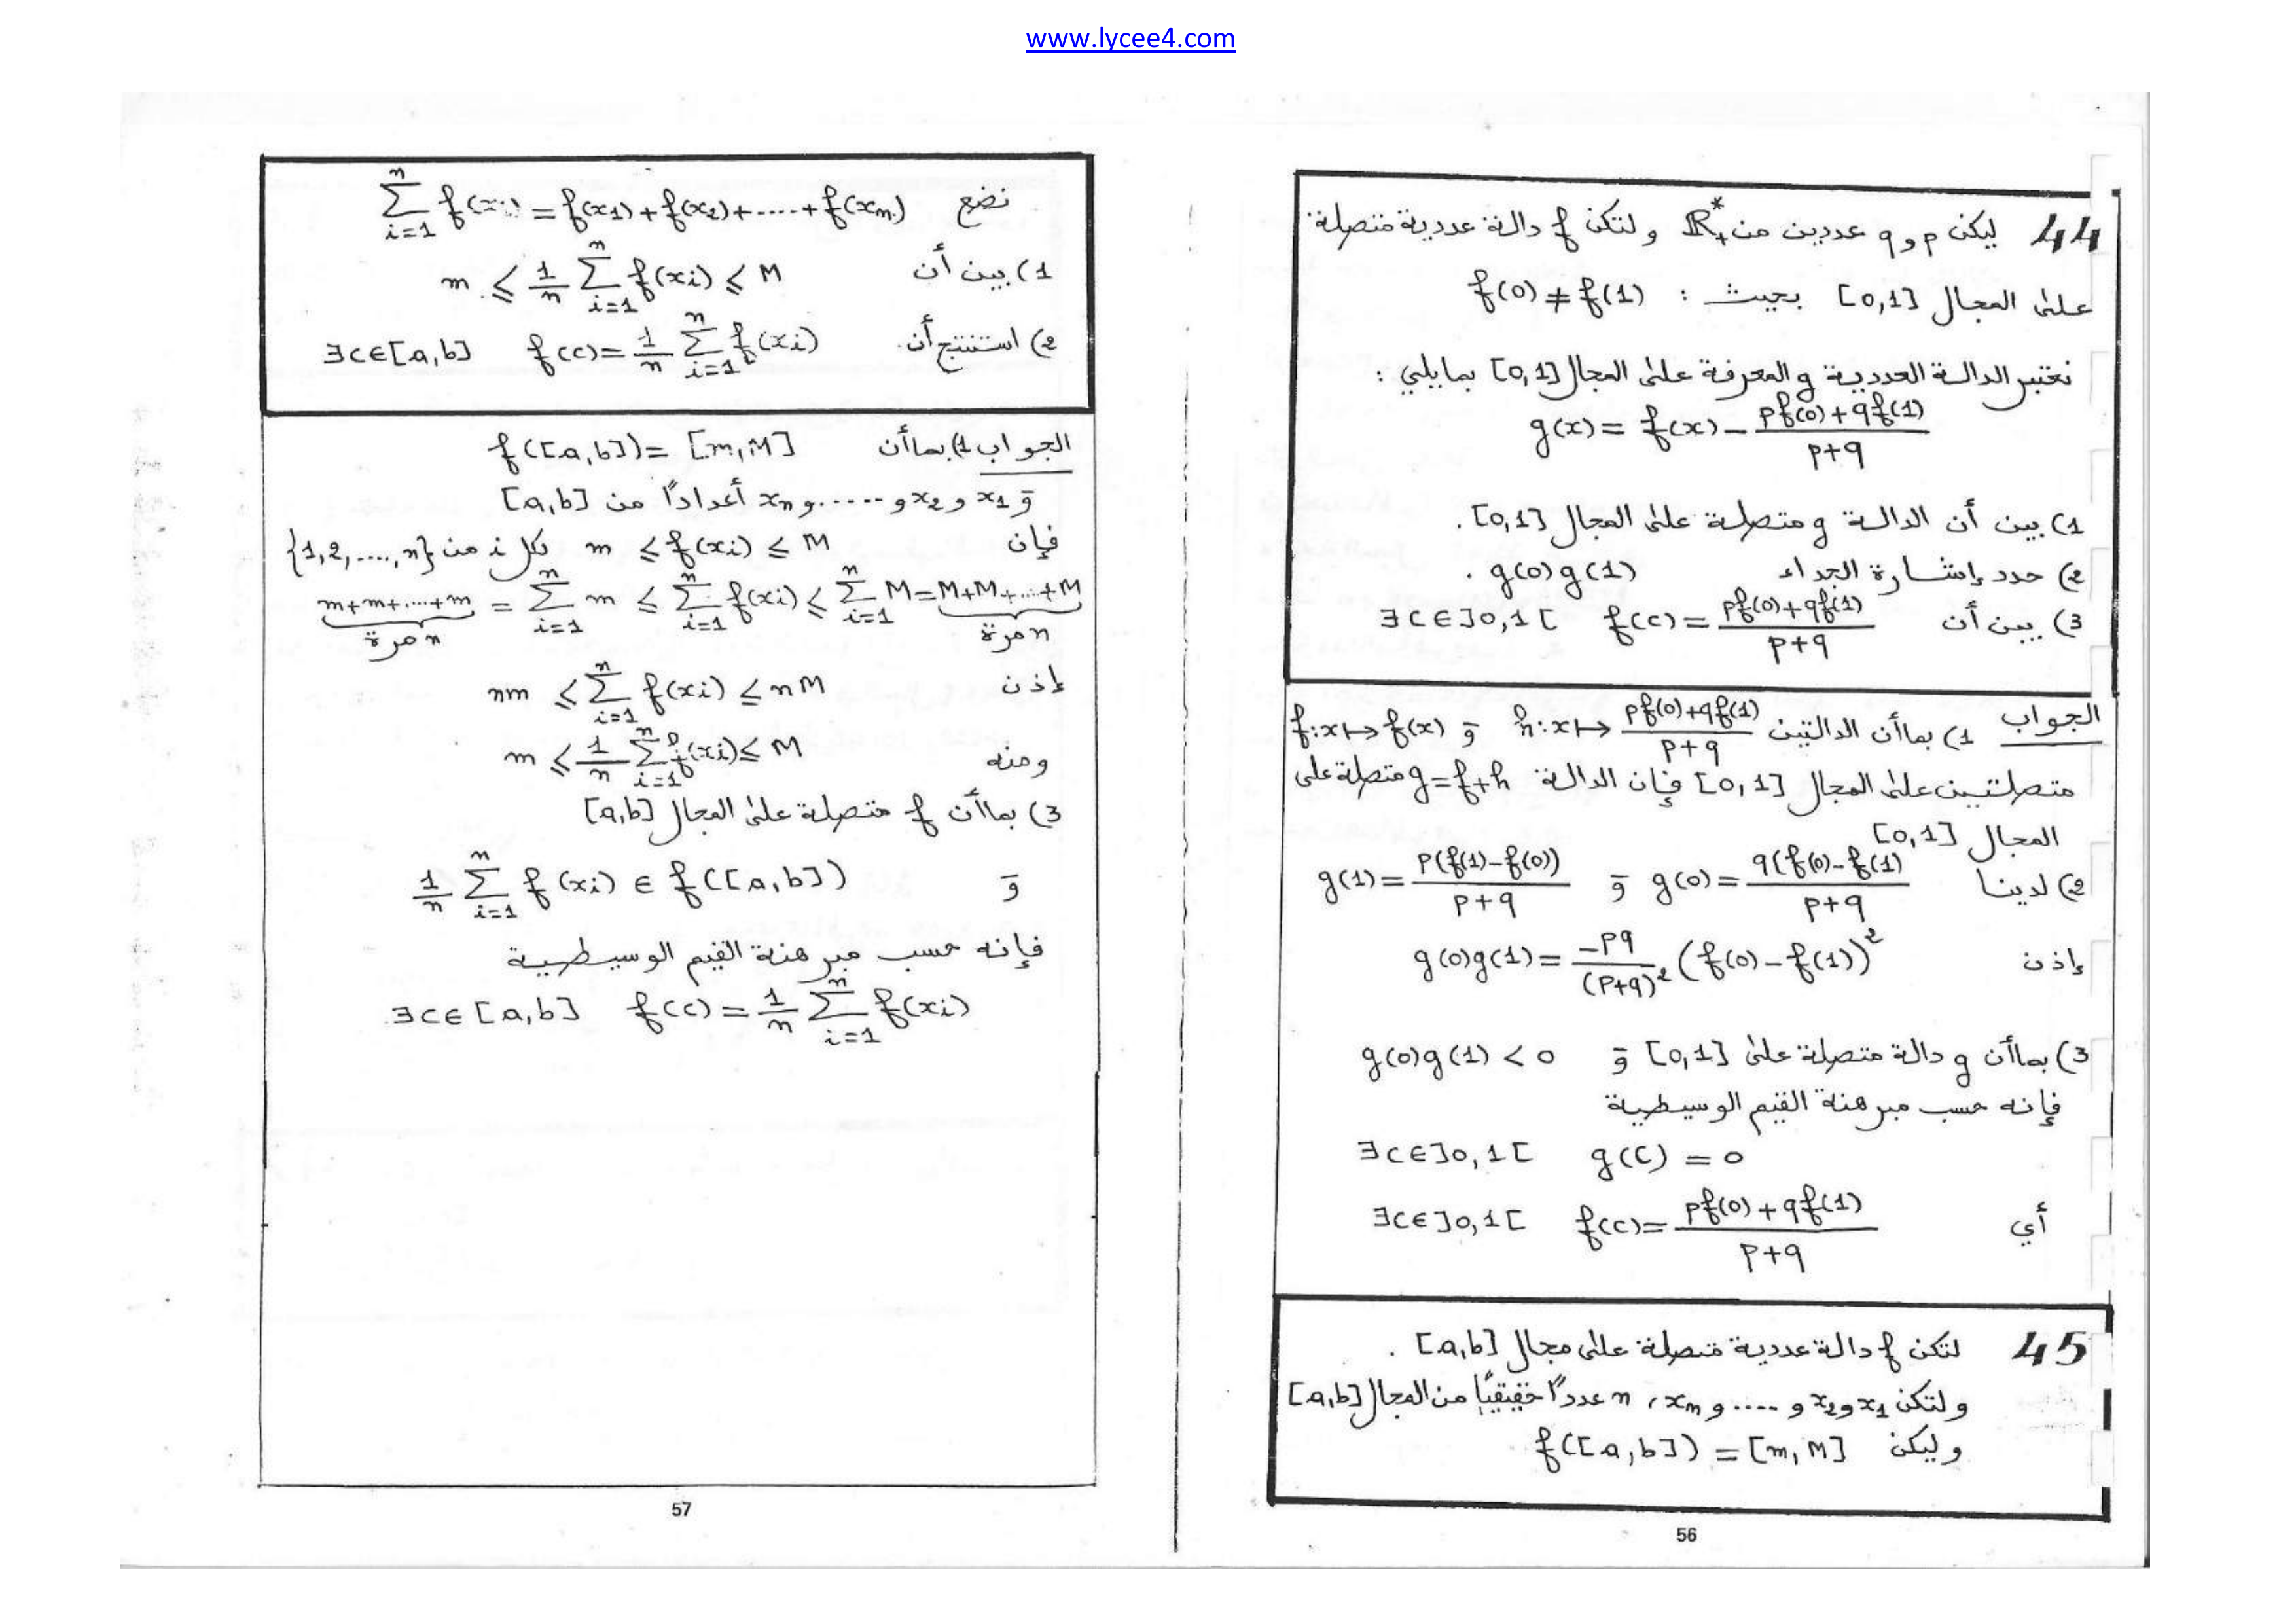 www.lycee4.com
44 ليكن p و q عددين من ℝ₊* ولتكن f دالة عددية متصلة
على المجال [0,1] بحيث : f(0) ≠ f(1)
نعتبر الدالة العددية g المعرفة على المجال [0,1] بمايلي :
g(x) = f(x) − (pf(0)+qf(1))/(p+q)
1) بين أن الدالة g متصلة على المجال [0,1].
2) حدد إشارة الجداء g(0)g(1) .
3) بين أن ∃c∈]0,1[ f(c) = (pf(0)+qf(1))/(p+q)
الجواب 1) بماأن الدالتين h:x↦(pf(0)+qf(1))/(p+q) و f:x↦f(x)
متصلتين على المجال [0,1] فإن الدالة g=f+h متصلة على
المجال [0,1]
2) لدينا g(0) = q(f(0)−f(1))/(p+q) و g(1) = p(f(1)−f(0))/(p+q)
إذن g(0)g(1) = −pq/(p+q)² (f(0)−f(1))²
3) بماأن g دالة متصلة على [0,1] و g(0)g(1) < 0
فإنه حسب مبرهنة القيم الوسيطية
∃c∈]0,1[ g(c) = 0
أي ∃c∈]0,1[ f(c) = (pf(0)+qf(1))/(p+q)
45 لتكن f دالة عددية متصلة على مجال [a,b] .
ولتكن x₁ و x₂ و .... و xₙ ، n عددًا حقيقيًا من المجال [a,b]
وليكن f([a,b]) = [m,M]
56
نضع ∑ᵢ₌₁ⁿ f(xᵢ) = f(x₁)+f(x₂)+.....+f(xₙ)
1) بين أن m ≤ 1/n ∑ᵢ₌₁ⁿ f(xᵢ) ≤ M
2) استنتج أن ∃c∈[a,b] f(c) = 1/n ∑ᵢ₌₁ⁿ f(xᵢ)
الجواب 1) بماأن f([a,b]) = [m,M]
و x₁ و x₂ و ...... و xₙ أعدادًا من [a,b]
فإن m ≤ f(xᵢ) ≤ M لكل i من {1,2,....,n}
m+m+....+m = ∑ᵢ₌₁ⁿ m ≤ ∑ᵢ₌₁ⁿ f(xᵢ) ≤ ∑ᵢ₌₁ⁿ M = M+M+...+M
n مرة n مرة
إذن nm ≤ ∑ᵢ₌₁ⁿ f(xᵢ) ≤ nM
ومنه m ≤ 1/n ∑ᵢ₌₁ⁿ f(xᵢ) ≤ M
3) بماأن f متصلة على المجال [a,b]
و 1/n ∑ᵢ₌₁ⁿ f(xᵢ) ∈ f([a,b])
فإنه حسب مبرهنة القيم الوسيطية
∃c∈[a,b] f(c) = 1/n ∑ᵢ₌₁ⁿ f(xᵢ)
57